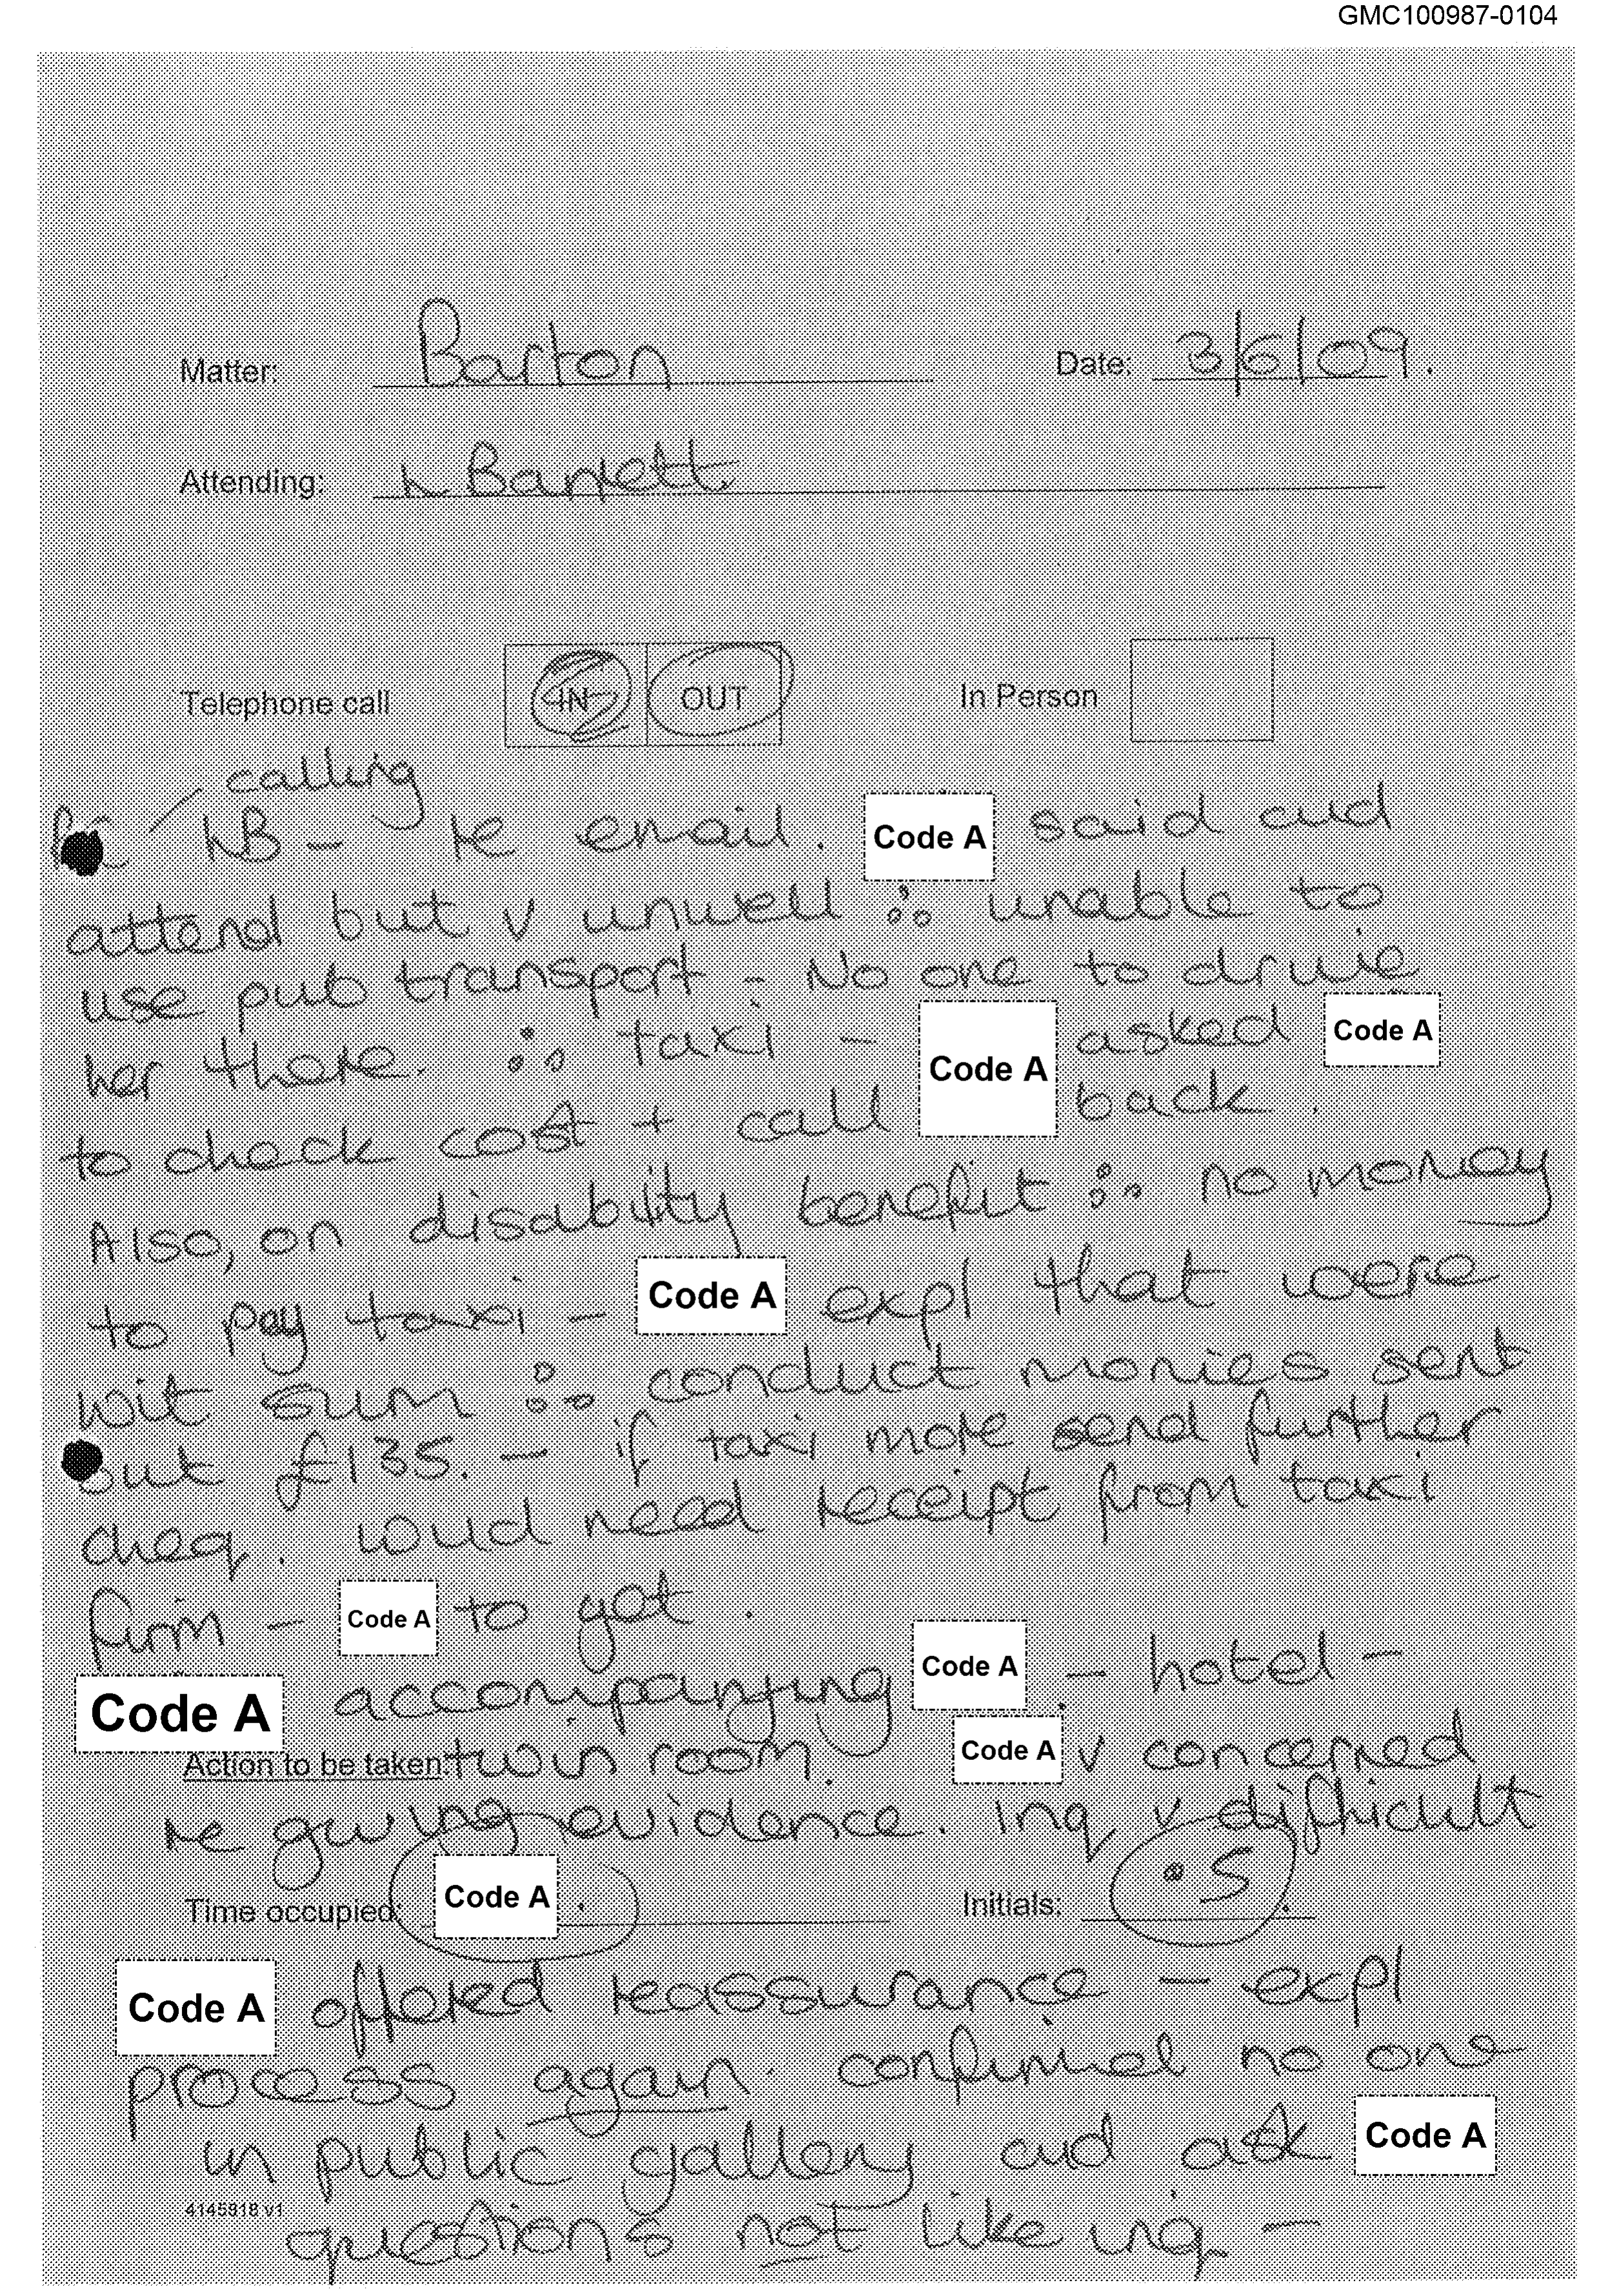 GMC100987-0104
Matter: Barton Date: 3/6/09.
Attending: L Barrett
Telephone call IN OUT In Person
calling
LB - re email. Code A said cud
attend but v unwell ∴ unable to
use pub transport - No one to drive
her there. ∴ taxi - Code A asked Code A
to check cost + call back.
Also, on disability benefit ∴ no money
to pay taxi - Code A expl that were
wit sum ∴ conduct monies sent
out £135. - if taxi more send further
cheq. woud need receipt from taxi
firm - Code A to get.
Code A accompanying Code A - hotel -
Action to be taken: twin room. Code A v concerned
re giving evidence. Inq v difficult
Time occupied: Code A. Initials: .5.
Code A offered reassurance - expl
process again. confirmed no one
in public gallery cud ask Code A
4145818 v1
questions not like inq -